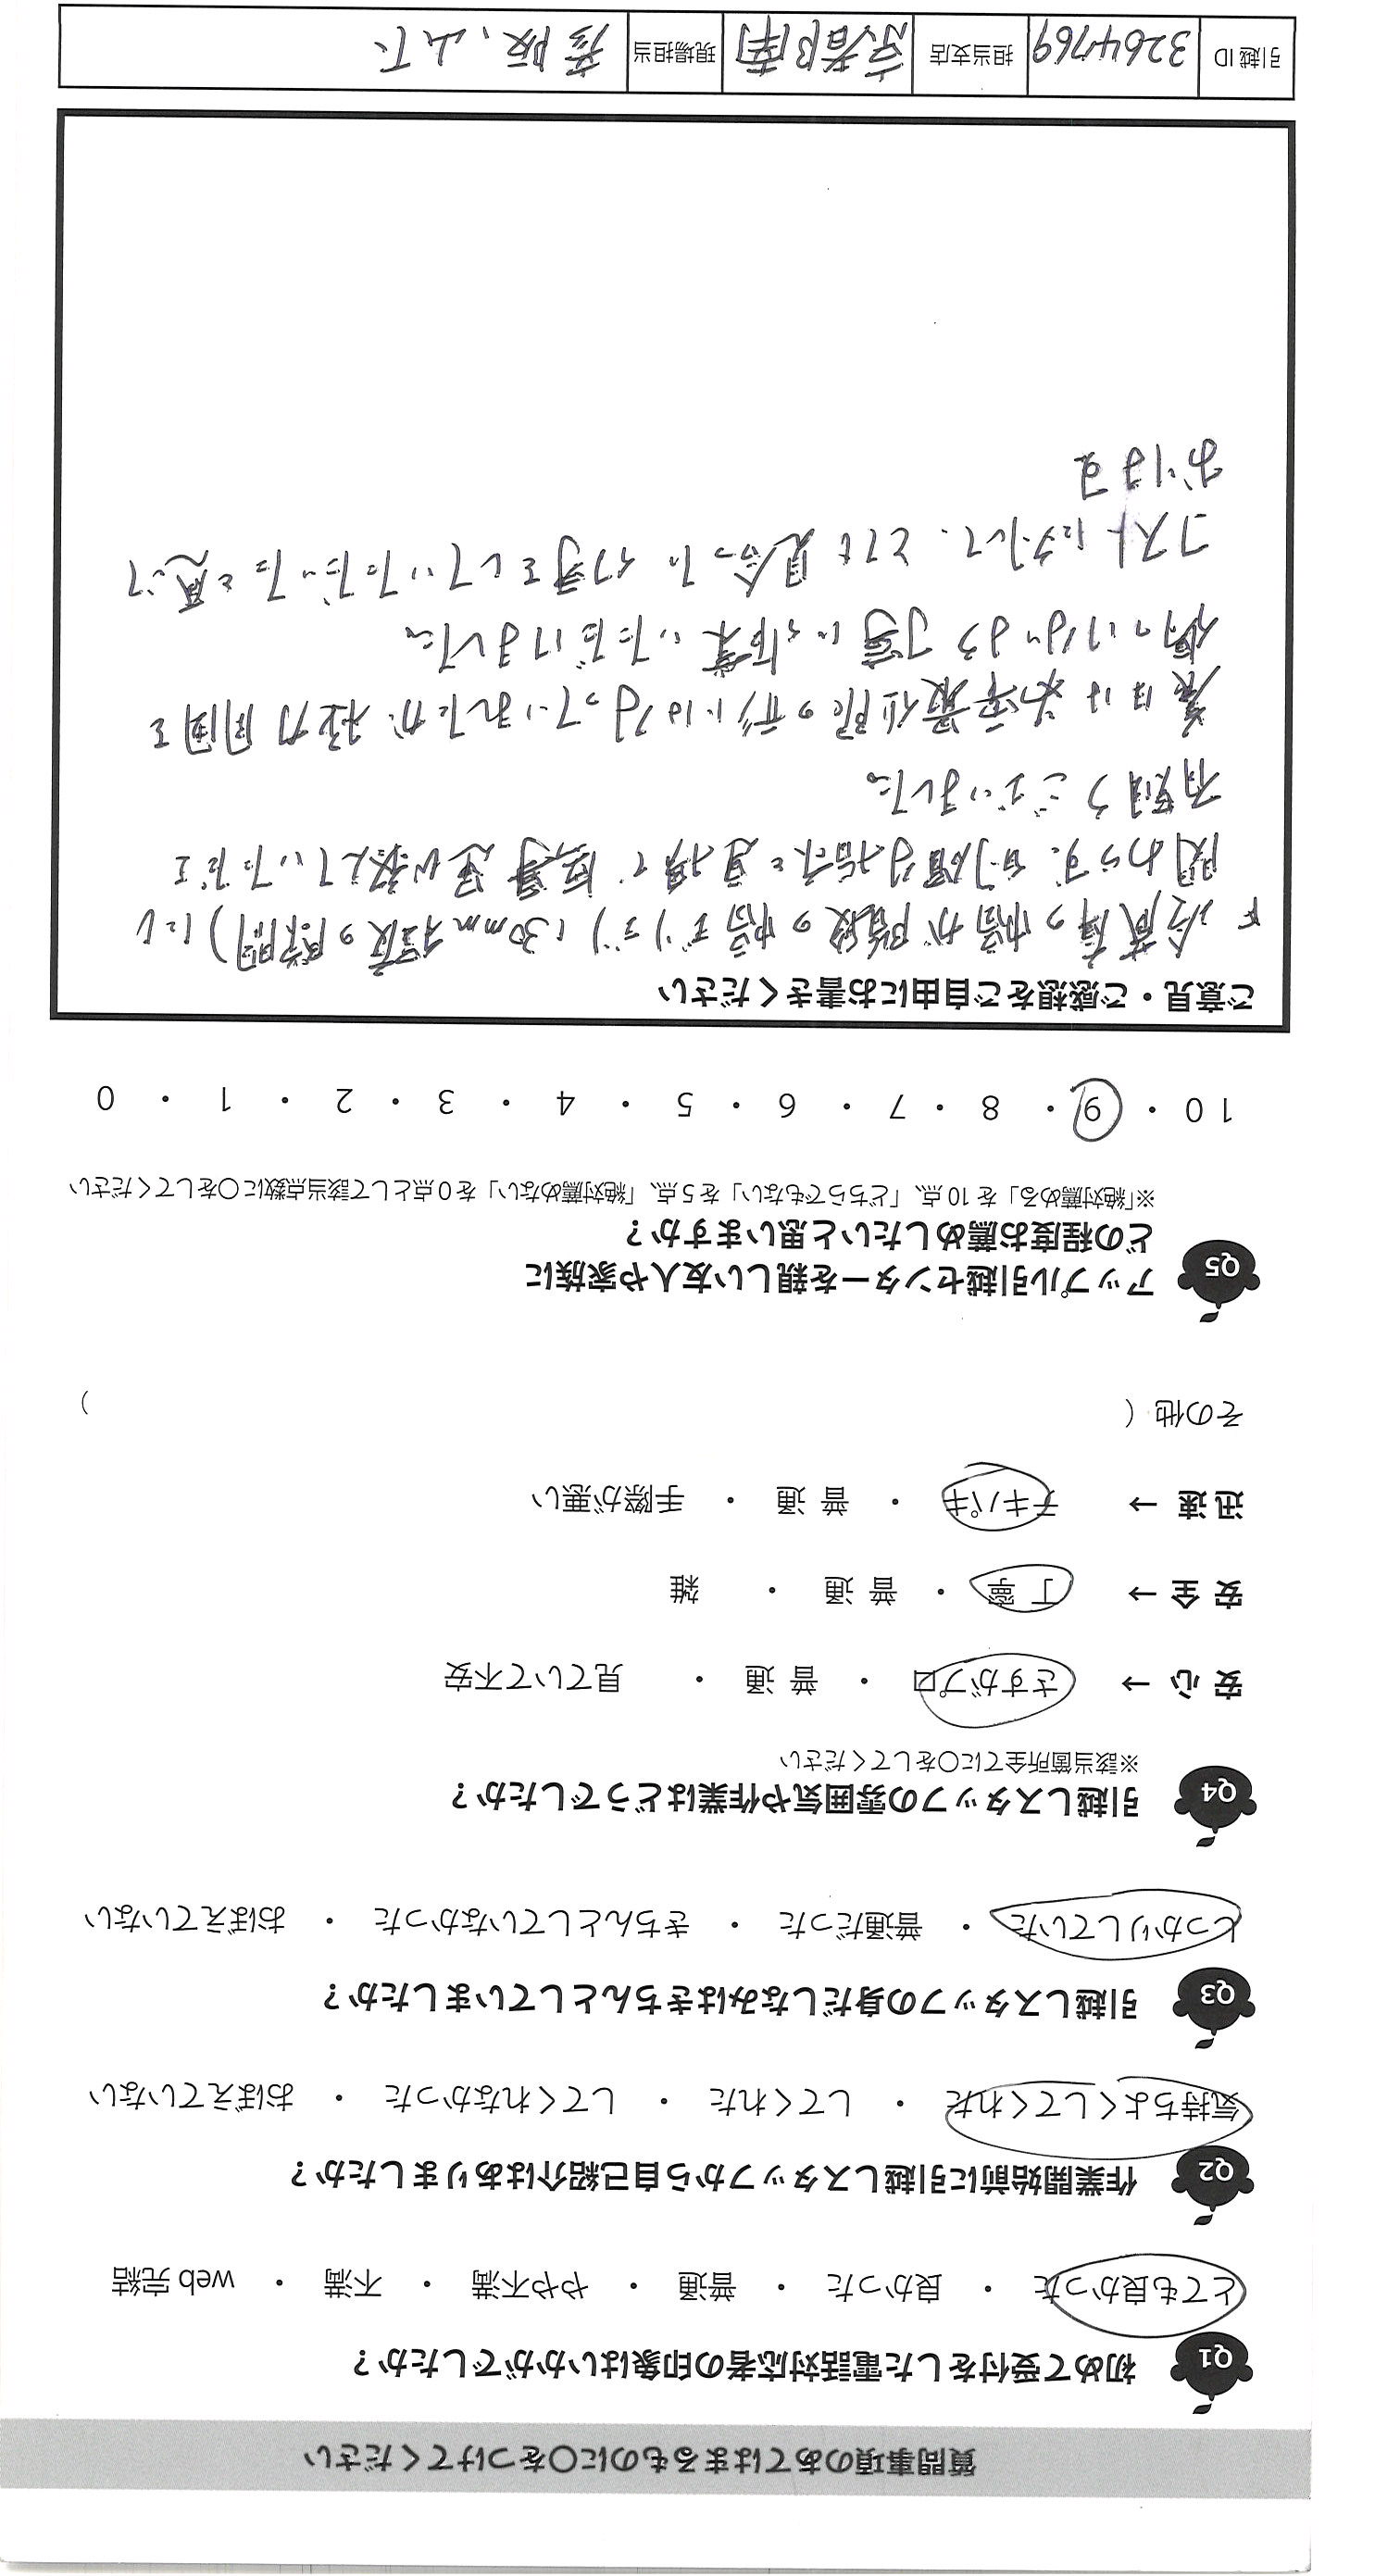 質問事項のあてはまるものに○をつけてください
Q1 初めて受付をした電話対応者の印象はいかがでしたか？
とても良かった ・ 良かった ・ 普通 ・ やや不満 ・ 不満 ・ web 完結
Q2 作業開始前に引越しスタッフから自己紹介はありましたか？
気持ちよくしてくれた ・ してくれた ・ してくれなかった ・ おぼえていない
Q3 引越しスタッフの身だしなみはきちんとしていましたか？
しっかりしていた ・ 普通だった ・ きちんとしていなかった ・ おぼえていない
Q4 引越しスタッフの雰囲気や作業はどうでしたか？
※該当箇所全てに○をしてください
安 心 → さすがプロ ・ 普 通 ・ 見ていて不安
安 全 → 丁 寧 ・ 普 通 ・ 雑
迅 速 → テキパキ ・ 普 通 ・ 手際が悪い
その他（ ）
Q5 アップル引越センターを親しい友人や家族に
どの程度お薦めしたいと思いますか？
※「絶対薦める」を 10 点、「どちらでもない」を 5 点、「絶対薦めない」を 0 点として該当点数に○をしてください
10 ・ 9 ・ 8 ・ 7 ・ 6 ・ 5 ・ 4 ・ 3 ・ 2 ・ 1 ・ 0
ご意見・ご感想をご自由にお書きください
冷蔵庫の幅が階段の幅ギリギリ(30mm程度の隙間)にも
関わらず、的確な指示と連携で無事運び終えていただき
有難うございました。
最低限の形にはなっていましたが極力周囲を
傷つけないよう丁寧に作業いただけました。
コストに対して、とても見合った仕事をしていただいたと思って
おります
引越 ID 3264769 担当支店 京都南 現場担当 彦阪、山下